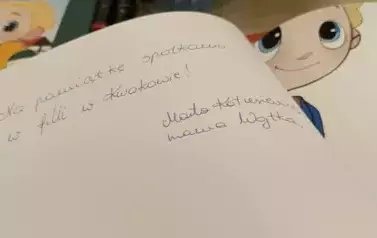 Na pamiątkę spotkania
w filii w Kwakowie!
Marta
mama Wojtka